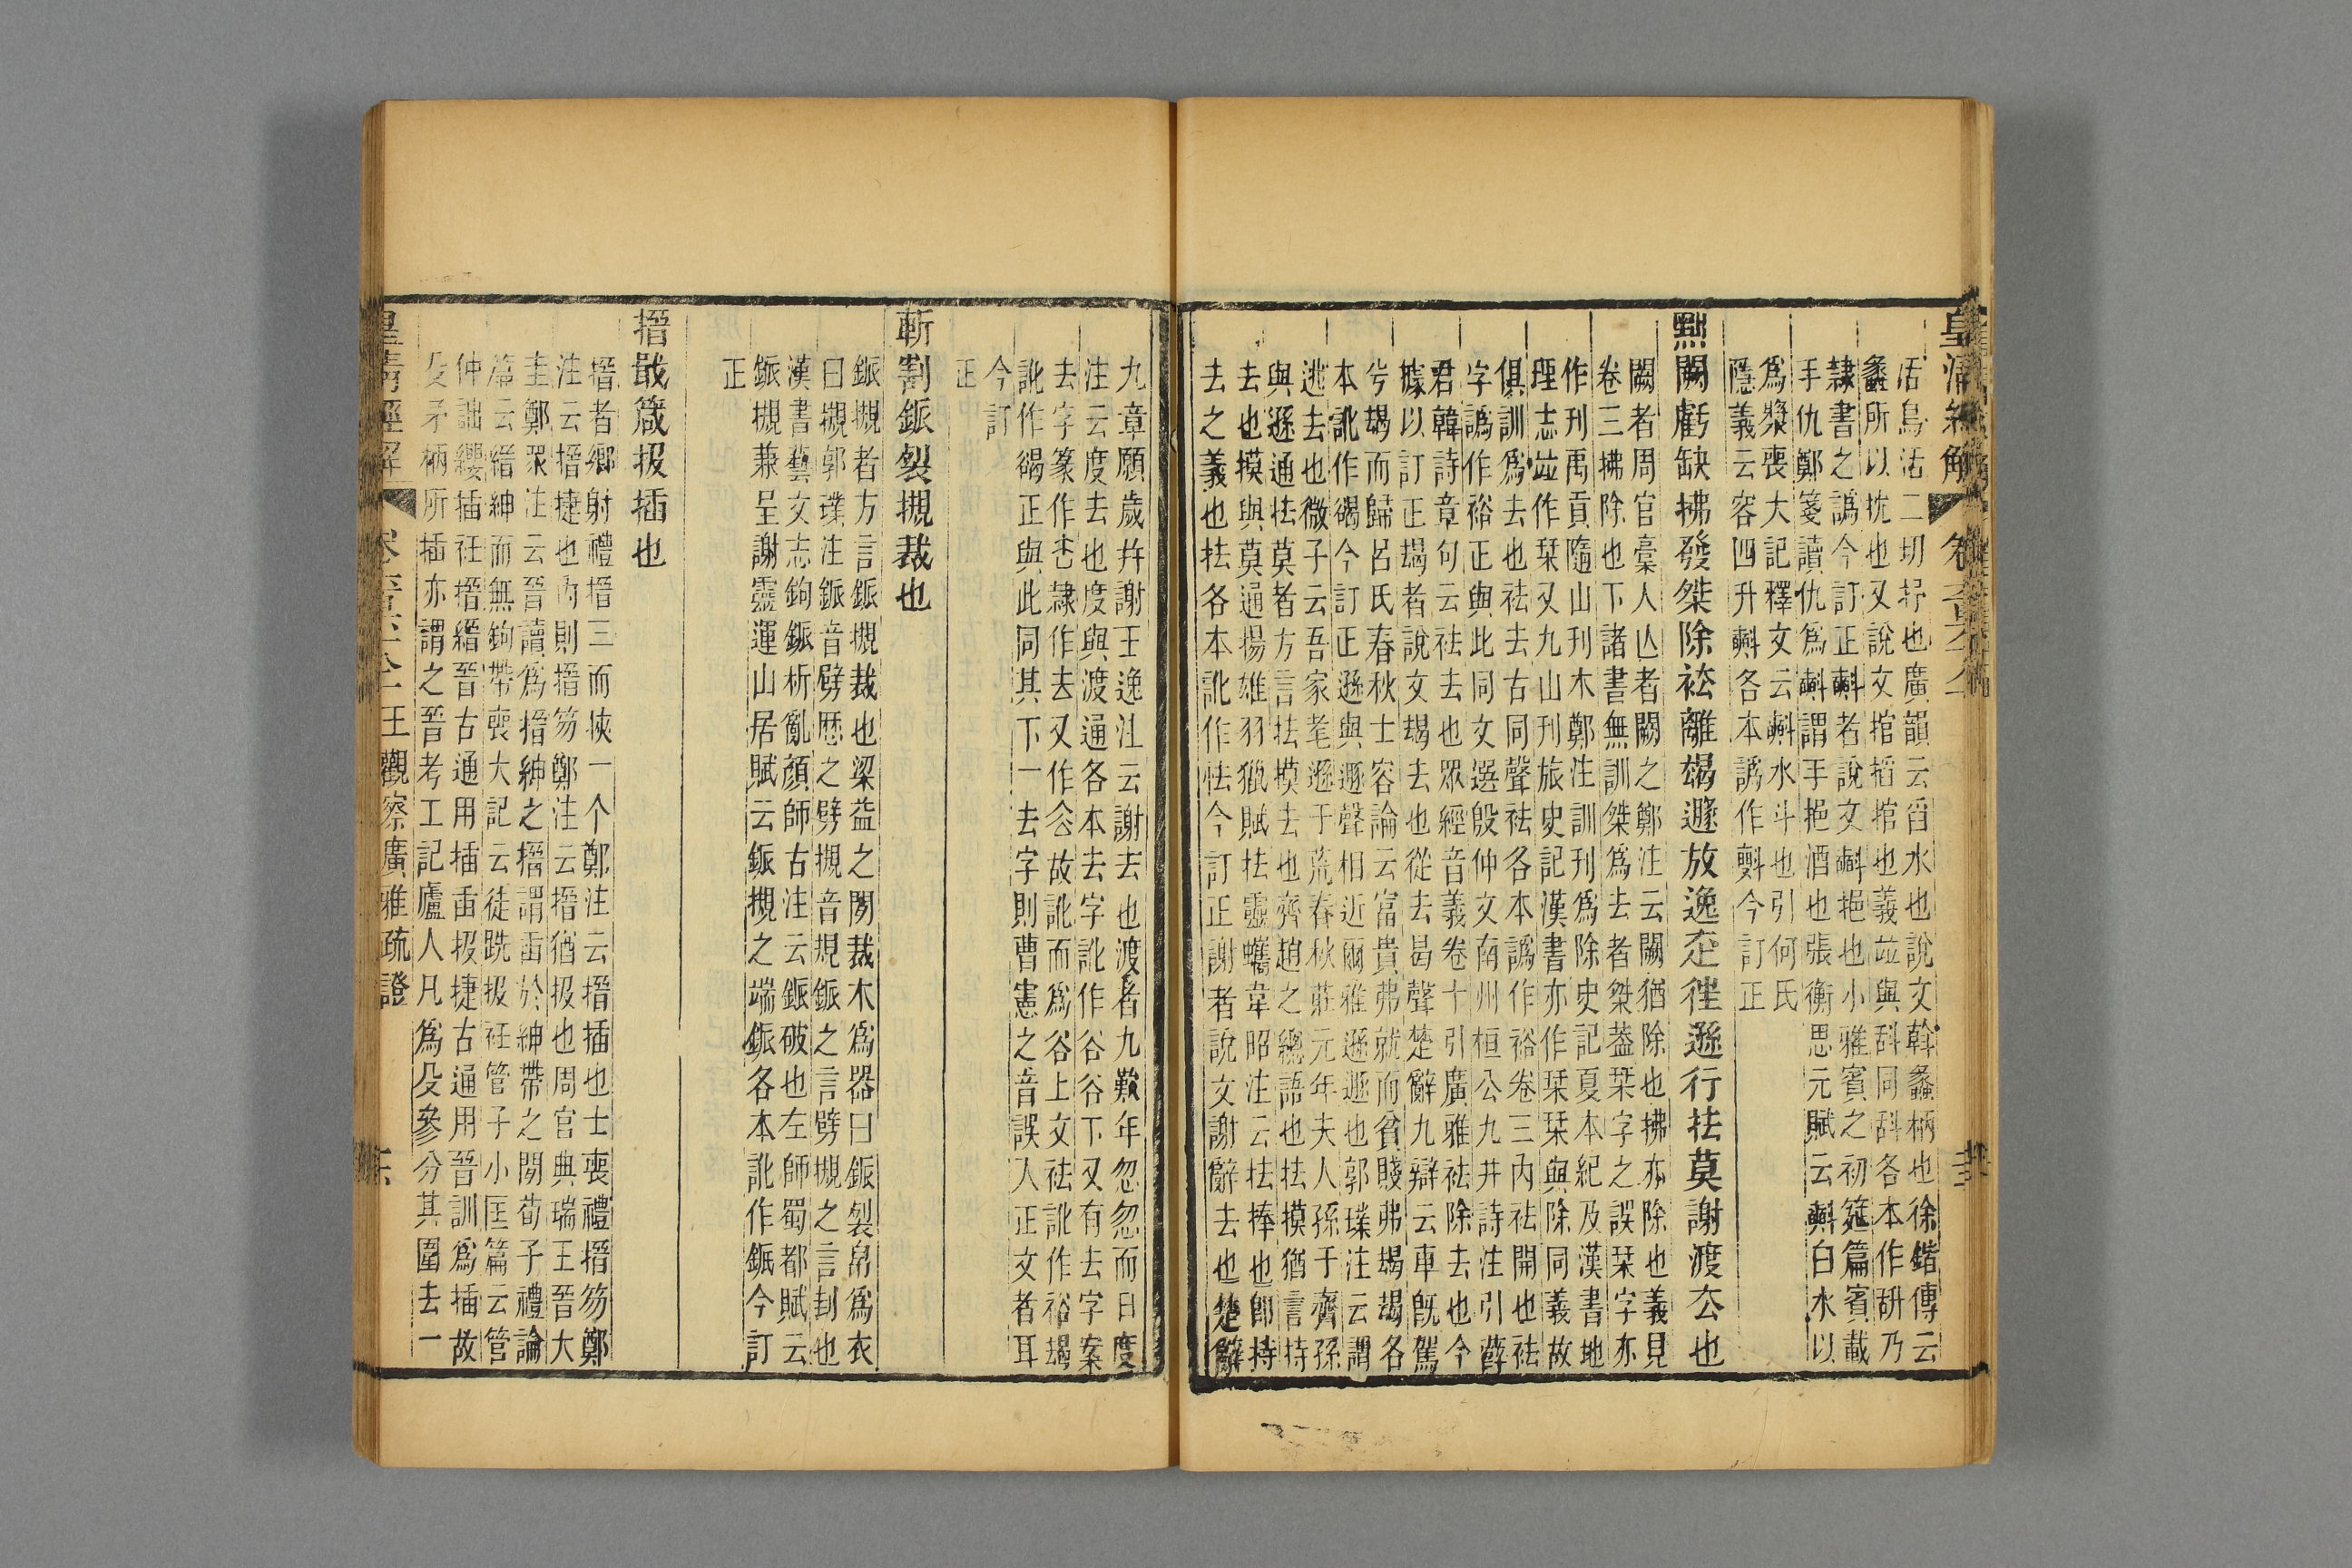 皇清經解
活烏活二切抒也廣韻云舀水也說文斡蠡柄也徐鍇傳云
蠡所以抌也又說文捾搯捾也義竝與㪺同㪺各本作㪾乃
隸書之譌今訂正㪺者說文㪺挹也小雅賓之初筵篇賓載
手仇鄭箋讀仇爲㪺謂手挹酒也張衡思元賦云㪺白水以
爲漿喪大記釋文云㪺水斗也引何氏
隱義云容四升㪺各本譌作㪺今訂正
㸃闕虧缺拂發桀除袪離朅遯放逸去徃遜行抾莫謝渡厺也
闕者周官稾人亾者闕之鄭注云闕猶除也拂亦除也義見
卷三拂除也下諸書無訓桀爲去者桀葢栞字之誤栞字亦
作刊禹貢隨山刊木鄭注訓刊爲除史記夏本紀及漢書地
理志竝作栞又九山刊旅史記漢書亦作栞栞與除同義故
俱訓爲去也袪去古同聲袪各本譌作裕卷三內袪開也袪
字譌作裕正與此同文選殷仲文南州桓公九井詩注引薛
君韓詩章句云袪去也眾經音義卷十引廣雅袪除去也今
據以訂正朅者說文朅去也從去曷聲楚辭九辯云車旣駕
兮朅而歸呂氏春秋士容論云富貴弗就而貧賤弗朅朅各
本訛作䄎今訂正遜與遯聲相近爾雅遜遯也郭璞注云謂
逃去也微子云吾家耄遜于荒春秋莊元年夫人孫于齊孫
與遜通抾莫者方言抾摸去也齊趙之總語也抾摸猶言持
去也摸與莫通揚雄羽獵賦抾靈蠵韋昭注云抾捧也卽持
去之義也抾各本訛作怯今訂正謝者說文謝辭去也楚辭
九章願歲并謝王逸注云謝去也渡者九歎年忽忽而日度
注云度去也度與渡通各本去字訛作谷谷下又有去字案
去字篆作厺隸作去又作厺故訛而爲谷上文袪訛作裕朅
訛作䄎正與此同其下一去字則曹憲之音誤入正文者耳
今訂
正
斬割鈲裂摫裁也
鈲摫者方言鈲摫裁也梁益之閒裁木爲器曰鈲裂帛爲衣
曰摫郭璞注鈲音劈歷之劈摫音規鈲之言劈摫之言刲也
漢書藝文志鉤鈲析亂顏師古注云鈲破也左師蜀都賦云
鈲摫兼呈謝靈運山居賦云鈲摫之端鈲各本訛作鈲今訂
正
搢戢箴扱插也
搢者鄉射禮搢三而挾一个鄭注云搢插也士喪禮搢笏鄭
注云搢捷也內則搢笏鄭注云搢猶扱也周官典瑞王晉大
圭鄭眾注云晉讀爲搢紳之搢謂臿於紳帶之閒荀子禮論
篇云縉紳而無鉤帶喪大記云徒跣扱衽管子小匡篇云管
仲詘纓插衽搢縉晉古通用插臿扱捷古通用晉訓爲插故
殳矛柄所插亦謂之晉考工記廬人凡爲殳參分其圍去一
皇清經解 王觀察廣雅疏證